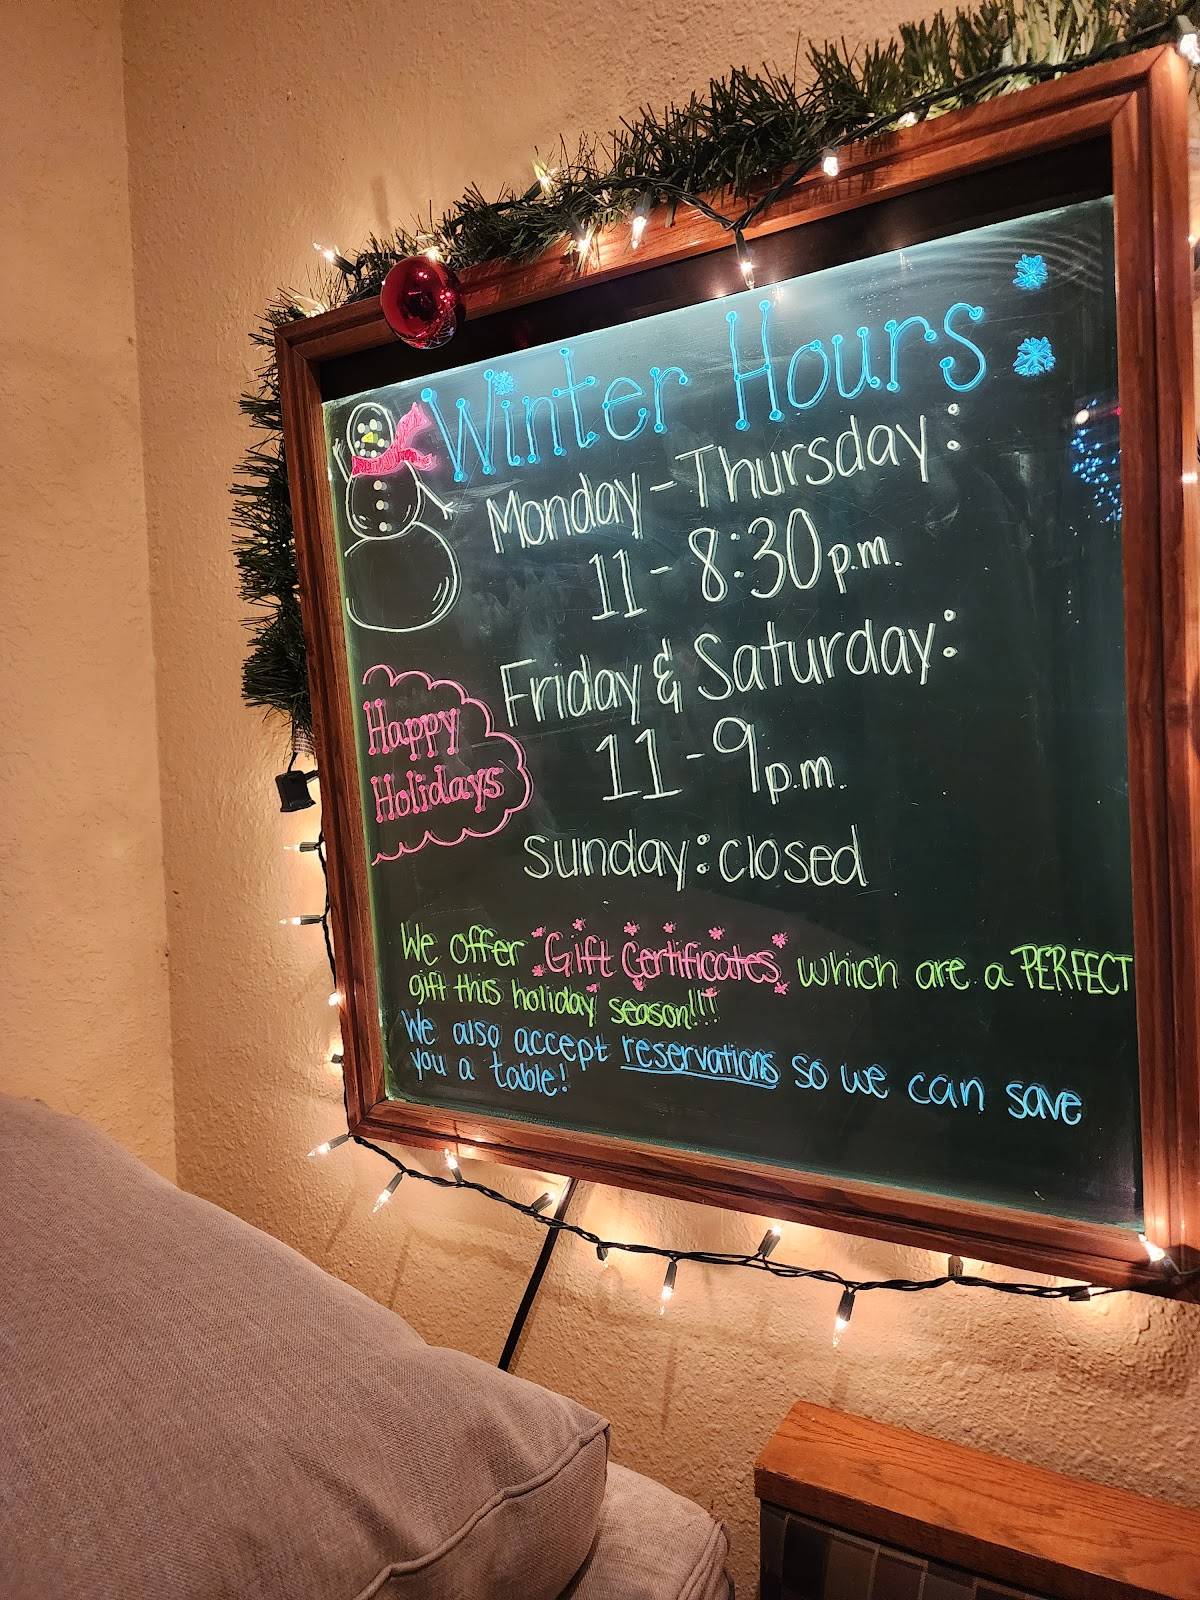 Winter Hours
Monday - Thursday:
11 - 8:30 p.m.
Friday & Saturday:
11 - 9 p.m.
Happy
Holidays
Sunday: closed
We offer Gift Certificates which are a PERFECT
gift this holiday season!!!
We also accept reservations so we can save
you a table!